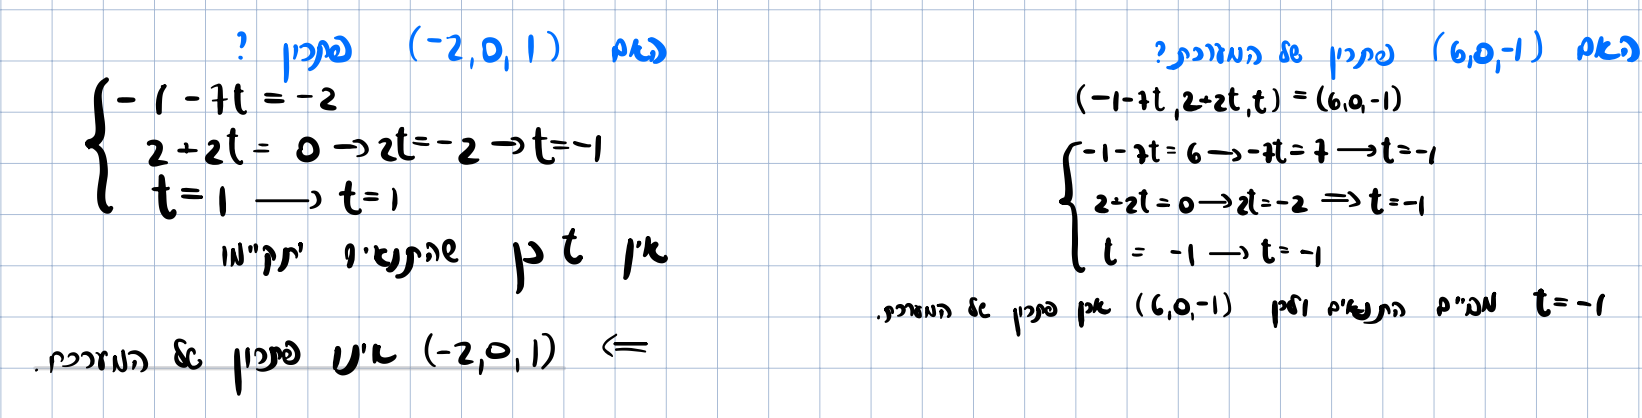 האם (6,0,-1) פתרון של המערכת?
(-1-7t, 2+2t, t) = (6,0,-1)
-1-7t = 6 → -7t = 7 → t=-1
2+2t = 0 → 2t = -2 ⇒ t=-1
t = -1 → t = -1
t = -1 מקיים התנאים ולכן (6,0,-1) אכן פתרון של המערכת.
האם (-2,0,1) פתרון ?
-1-7t = -2
2+2t = 0 → 2t=-2 → t=-1
t=1 → t=1
אין t כך שהתנאים יתקיימו
⇐ (-2,0,1) אינו פתרון של המערכת.